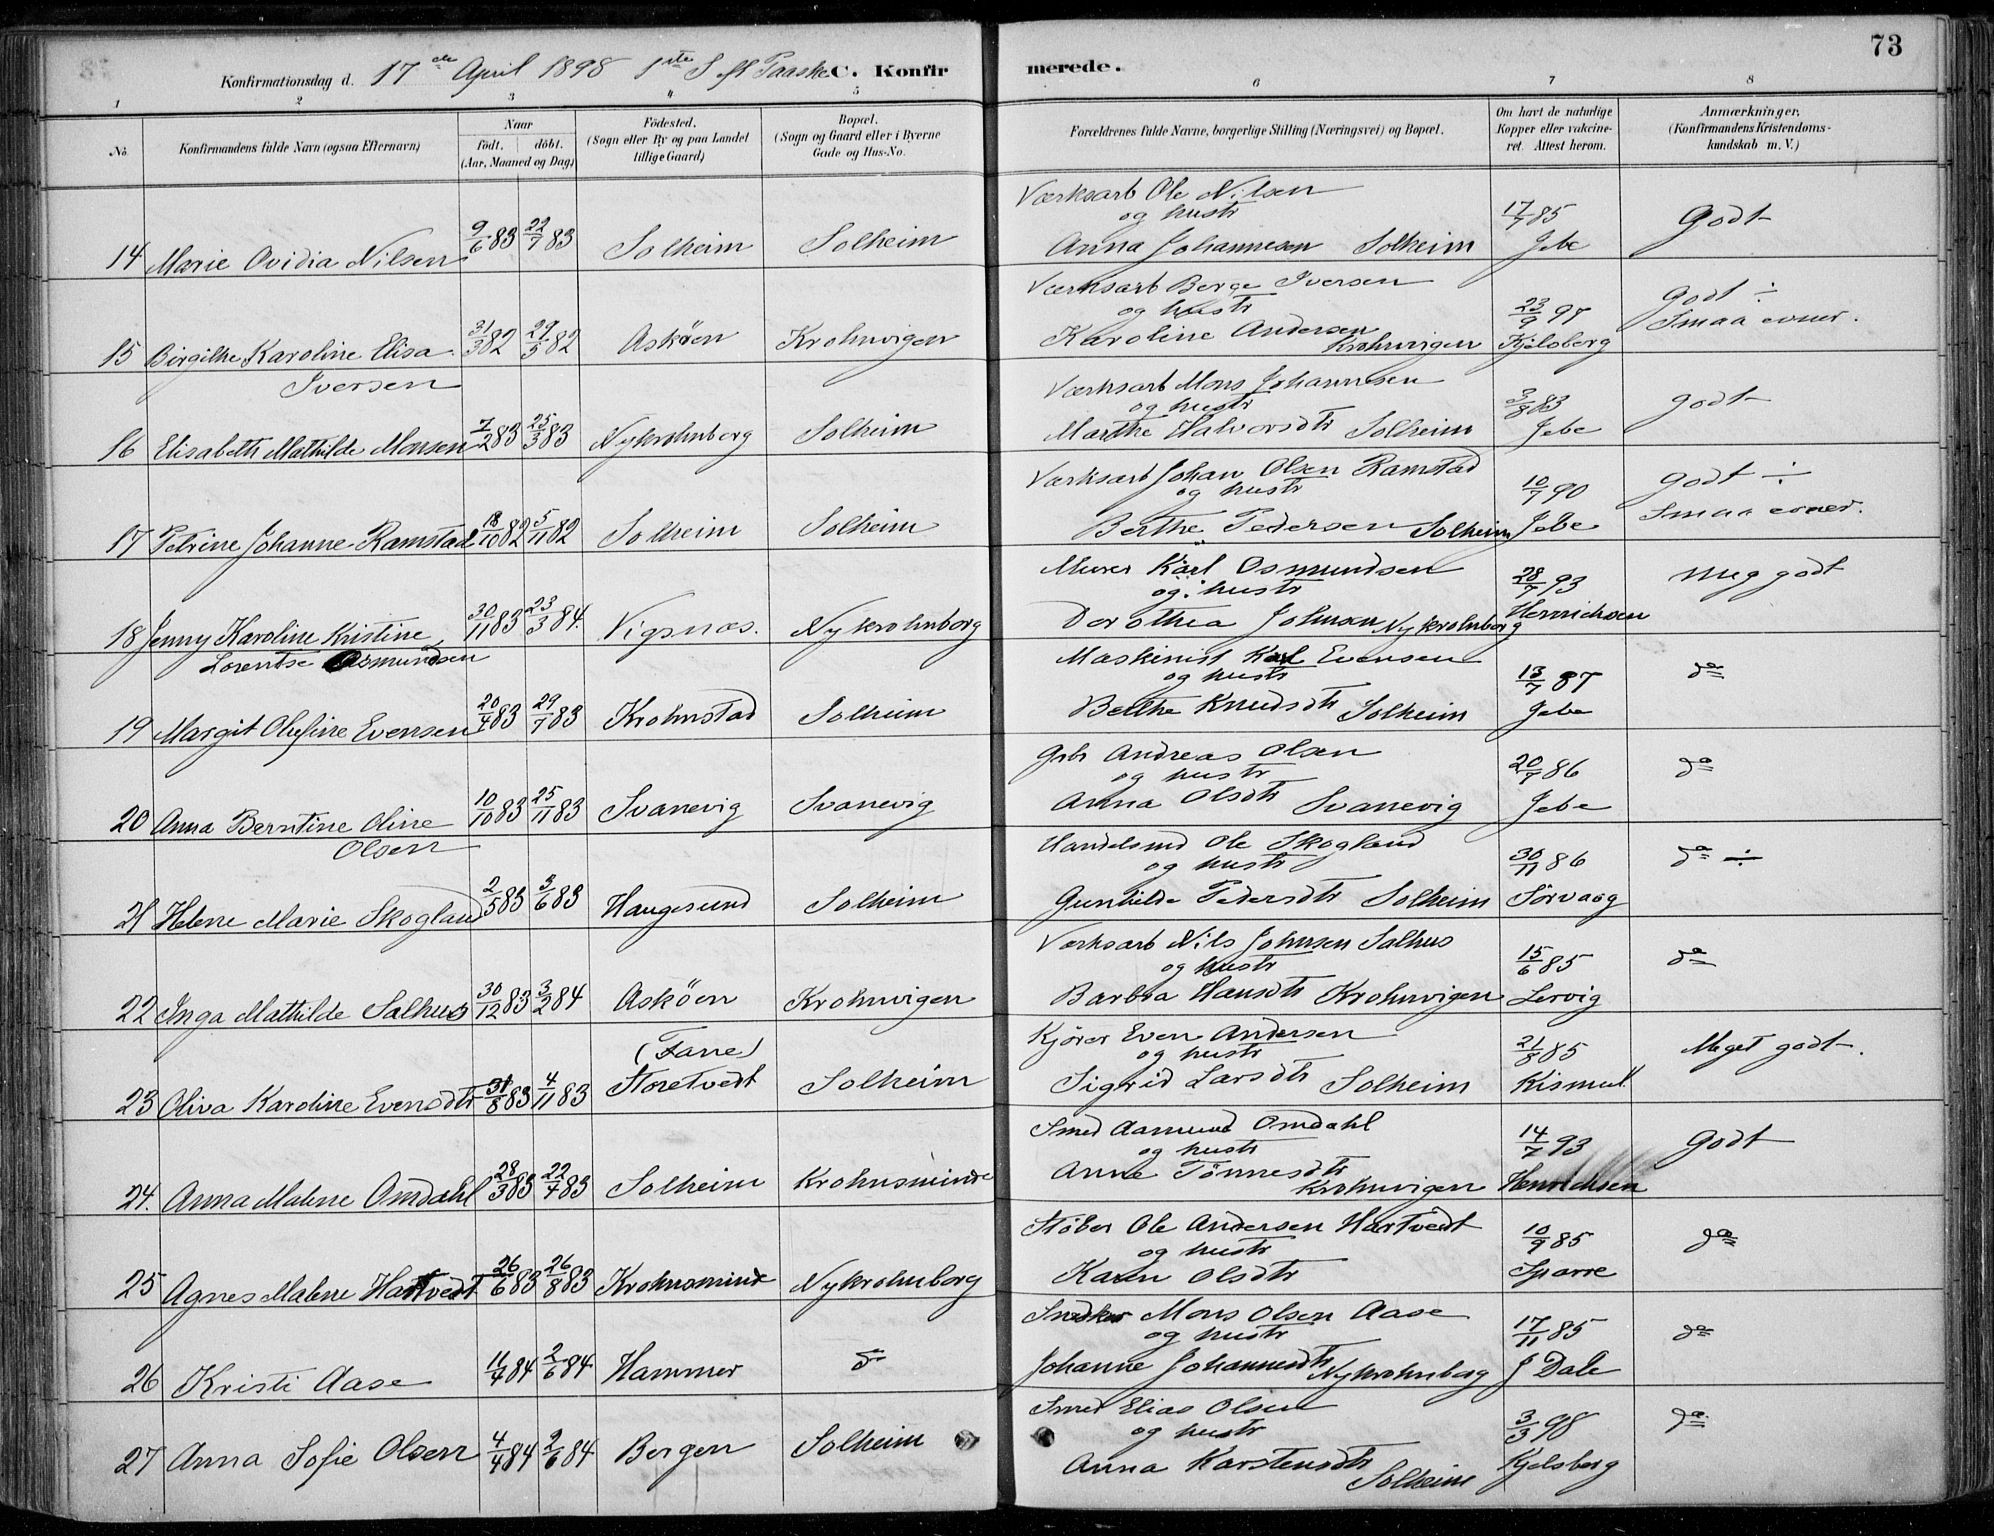 73
Konfirmationsdag d. 17de April 1898 1ste S. eft Paaske C. Konfirmerede.
1 2 3 4 5 6 7 8
No. Konfirmandens fulde Navn (ogsaa Efternavn) Naar født. døbt. (Aar, Maaned og Dag) Fødested. (Sogn eller By og paa Landet tillige Gaard) Bopæl. (Sogn og Gaard eller i Byerne Gade og Hus-No. Forældrenes fulde Navne, borgerlige Stilling (Næringsvei) og Bopæl. Om havt de naturlige Kopper eller vakcineret. Attest herom. Anmærkninger. (Konfirmandens Kristendomskundskab m. V.)
Værksarb Ole Nilsen
og hustr 17/7 85 Godt
14 Marie Ovidia Nilsen 9/6 83 22/7 83 Solheim Solheim Anna Johannesen Solheim Jebe
Værksarb Berge Iversen
og hustr 23/9 97 Godt ÷
15 Birgithe Karoline Elisa 31/3 82 29/5 82 Askøen Krohnvigen Karoline Andersen Krohnvigen Kjelsberg Smaa evner.
Iversen
Værksarb Mons Johannesen
og hustr 3/8 83 godt
16 Elisabeth Mathilde Monsen 7/2 83 25/3 83 Nykrohnborg Solheim Marthe Halvorsdtr Solheim Jebe
Værksarb Johan Olsen Ramstad
og hustr 10/7 90 godt ÷
17 Petrine Johanne Ramstad 18/10 82 5/11 82 Solheim Solheim Berthe Pedersen Solheim Jebe Smaa evner.
Murer Karl Osmundsen
og hustr 28/7 93 meg godt
18 Jenny Karoline Kristine 30/11 83 23/3 84. Vigsnæs. Nykrohnborg Dorothea Johnsen Nykrohnborg Henrichsen
Lorentse Osmundsen
Maskinist Karl Evensen
og hustr 13/7 87 do
19 Margit Olufine Evensen 20/4 83 29/7 83 Krohnstad Solheim Berthe Knudsdtr Solheim Jebe
Gbr Andreas Olsen
og hustr 20/7 86 do
20 Anna Berntine Oline 10/10 83 25/11 83 Svanevig Svanevig Anna Olsdtr Svanevig Jebe
Olsen
Handelsmd Ole Skogland
og hustr 30/11 86 do ÷
21 Helene Marie Skogland 2/5 83 3/6 83 Haugesund Solheim Gunhilde Pedersdtr Solheim Sörvaag
Værksarb Nils Johnsen Salhus
og hustr 15/6 85 do
22 Inga Mathilde Salhus 30/12 83 3/2 84 Askøen Krohnvigen Barbra Hansdtr Krohnvigen Lervig
Kjører Even Andersen
(Fane) og hustr 21/8 85 Meget godt.
23 Oliva Karoline Evensdtr 31/8 83 4/11 83 Storetvedt Solheim Sigrid Larsdtr Solheim Kismul
Smed Aamund Omdahl
og hustr 14/7 93 Godt
24. Anna Malene Omdahl 28/3 83 22/4 83 Solheim Krohnsminde Anne Tönnesdtr Krohnvigen Henrichsen
Støber Ole Andersen Hartvedt
og hustr 10/9 85 do
25 Agnes Malene Hartvedt 26/6 83 26/8 83 Krohnsminde Nykrohnborg Karen Olsdtr Sparre
Snedker Mons Olsen Aase
og hustr 17/11 85 do
26 Kristi Aase 11/4 84 2/6 84 Hammer do Johanne Johannesdtr Nykrohnborg J Dale
Smed Elias Olsen
og hustr 3/3 98 do
27 Anna Sofie Olsen 4/4 84 2/6 84 Bergen Solheim Anna Karstensdtr Solheim Kjelsberg